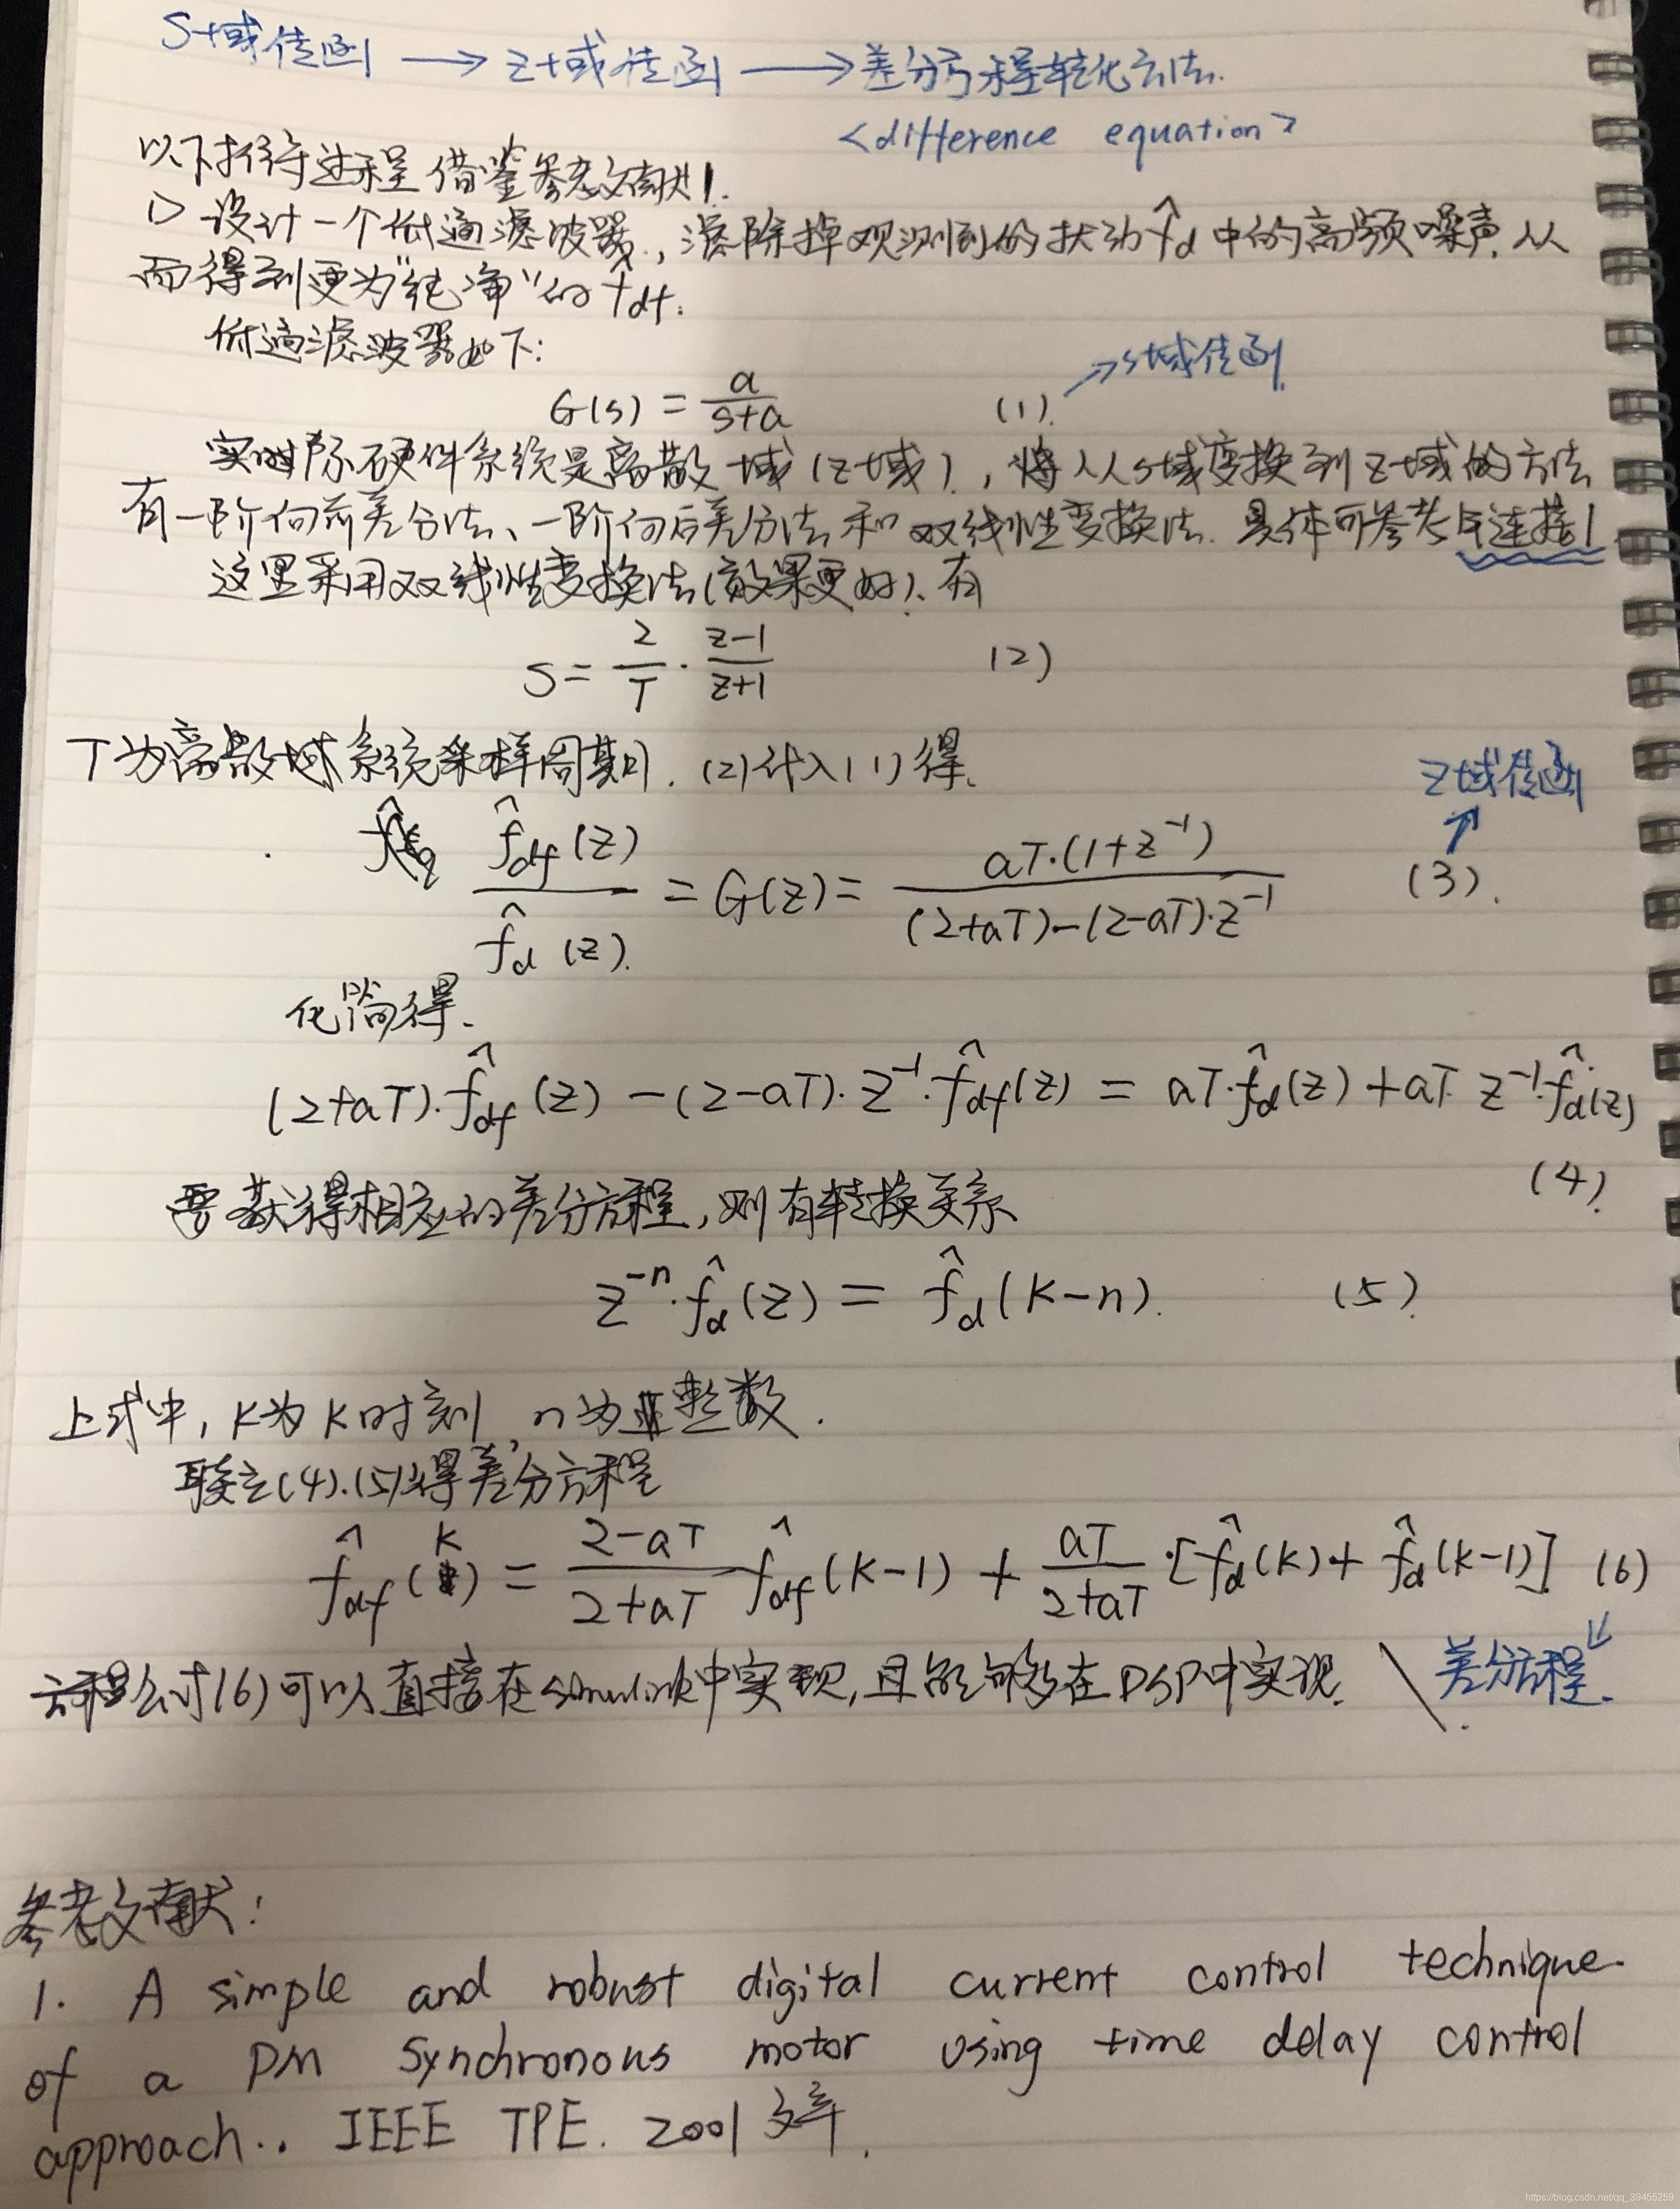 S域传函 → Z域传函 → 差分方程转化方法.
<difference equation>
以下推导过程借鉴参考文献1.
1> 设计一个低通滤波器, 滤除掉观测到的扰动 f̂d 中的高频噪声, 从
而得到更为"纯净"的 f̂df.
低通滤波器如下:
G(s) = a/(s+a) (1).
→s域传函.
实际硬件系统是离散域(z域), 将从s域变换到z域的方法
有一阶向前差分法、一阶向后差分法和双线性变换法. 具体可参考连接1
这里采用双线性变换法(效果更好), 有
S = 2/T · (z-1)/(z+1) (2)
T为离散域系统采样周期. (2)代入(1)得.
z域传函
f̂df(z)/f̂d(z) = G(z) = aT·(1+z⁻¹)/((2+aT)-(2-aT)·z⁻¹) (3).
化简得.
(2+aT)·f̂df(z) - (2-aT)·z⁻¹·f̂df(z) = aT·f̂d(z) + aT z⁻¹·f̂d(z)
(4)
要获得相应的差分方程, 则有转换关系
z⁻ⁿ·f̂d(z) = f̂d(k-n). (5)
上式中, k为k时刻, n为正整数.
联立(4).(5)得差分方程
f̂df(k) = (2-aT)/(2+aT) f̂df(k-1) + aT/(2+aT)·[f̂d(k) + f̂d(k-1)] (6)
方程公式(6)可以直接在simulink中实现, 且能够在DSP中实现. 差分方程.
参考文献:
1. A simple and robust digital current control technique
of a PM synchronous motor using time delay control
approach.. IEEE TPE. 2001
https://blog.csdn.net/qq_39455259